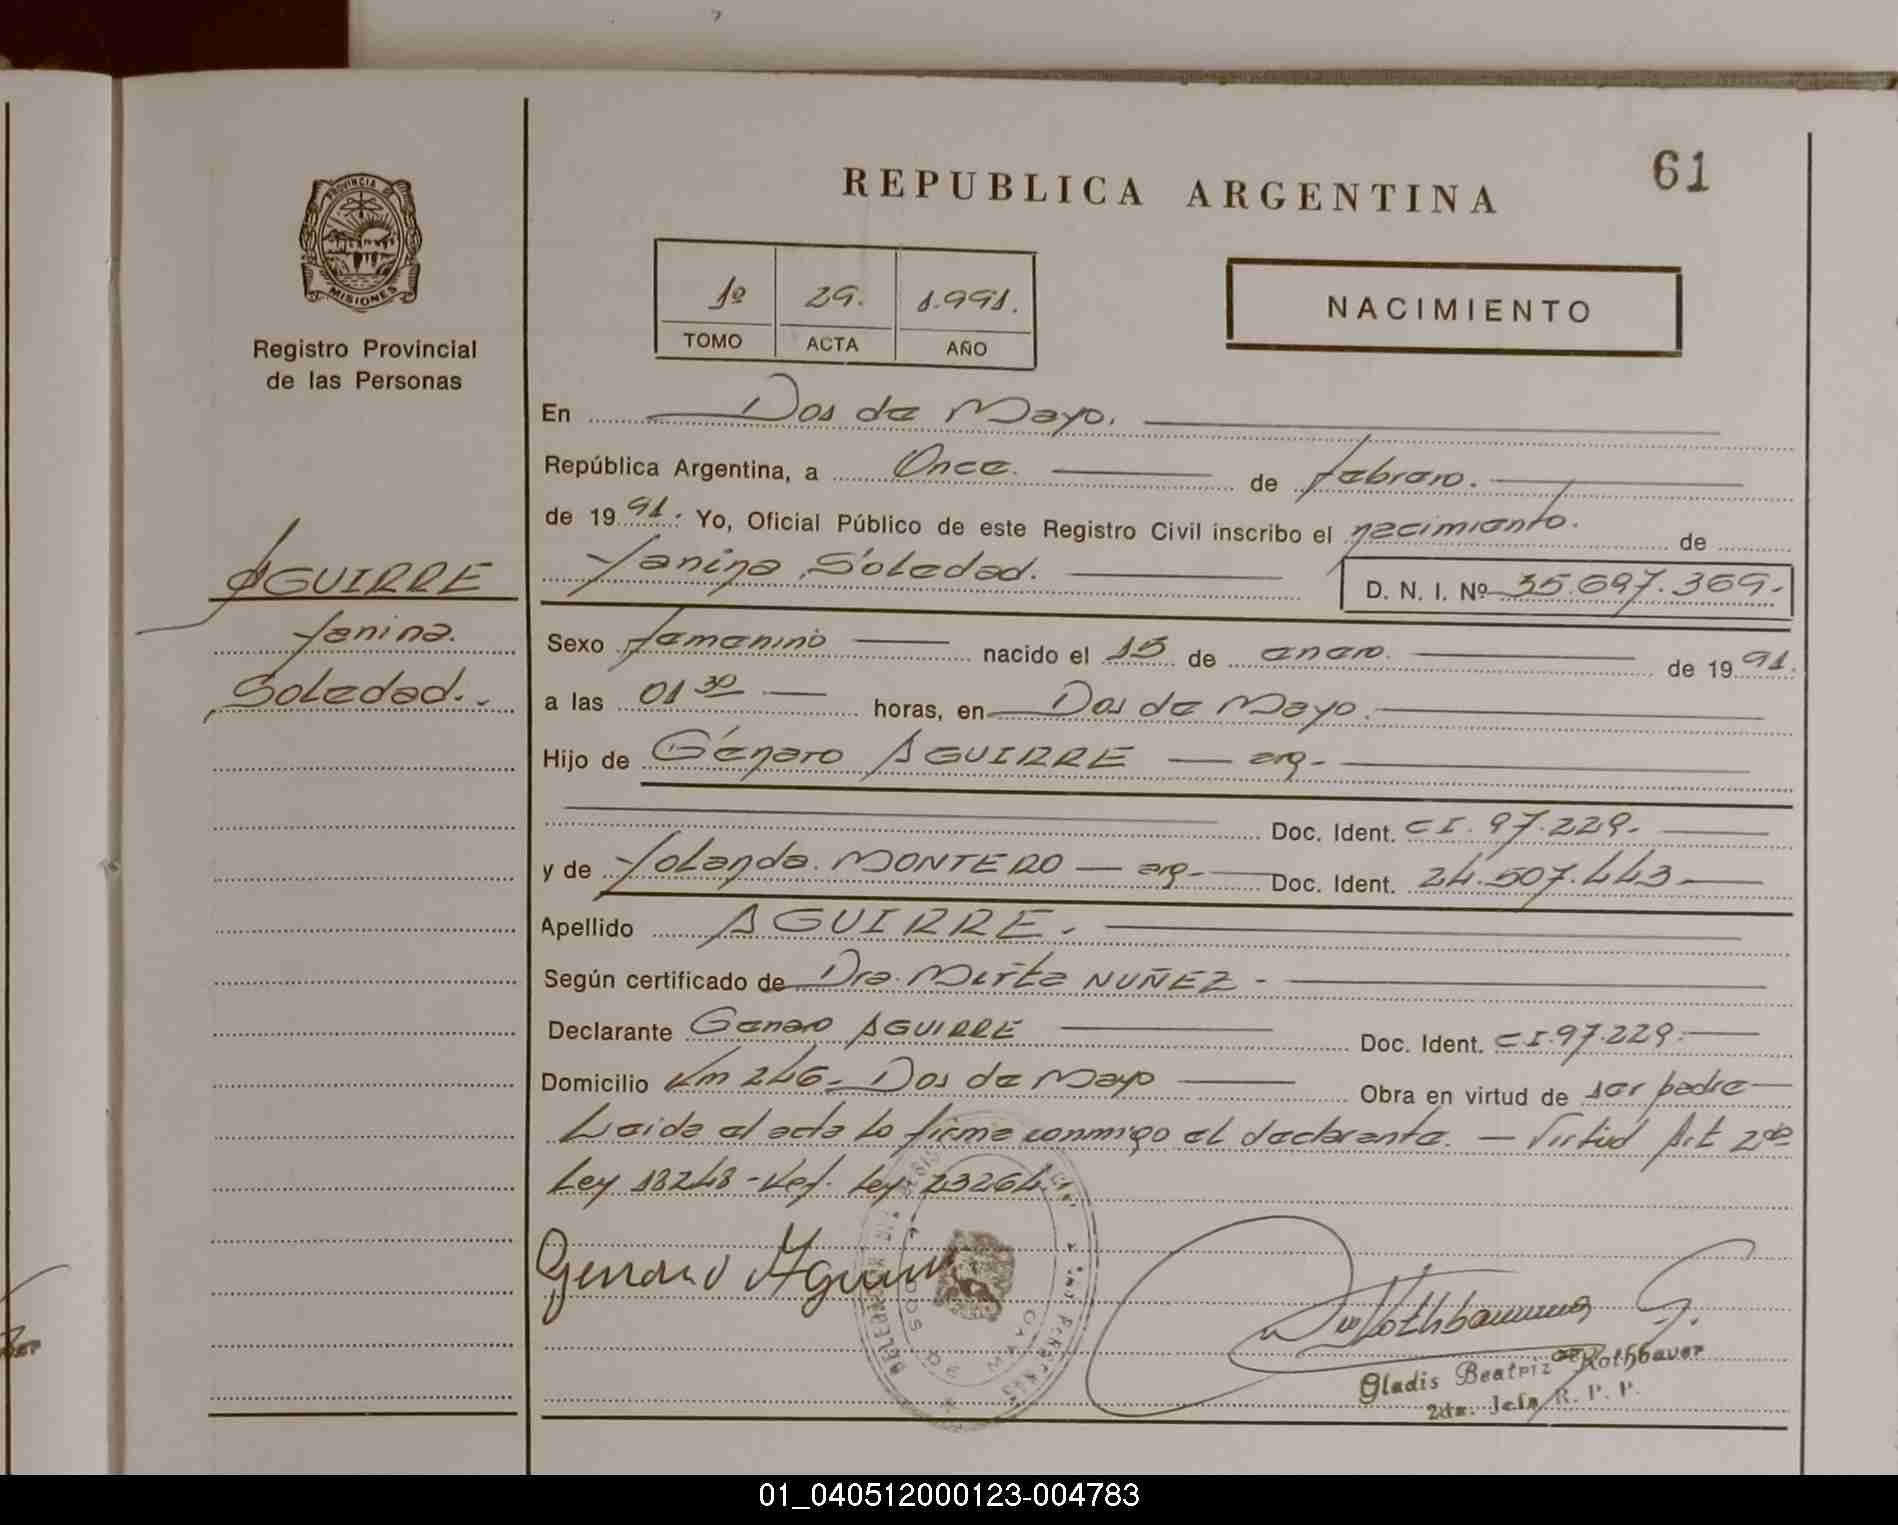 61
REPUBLICA ARGENTINA
PROVINCIA DE
MISIONES
Registro Provincial
de las Personas
1º 29. 1.991.
TOMO ACTA AÑO
NACIMIENTO
En Dos de Mayo.
República Argentina, a Once. de febrero.
de 19 91. Yo, Oficial Público de este Registro Civil inscribo el nacimiento. de
Yanina Soledad. D. N. I. Nº 35.697.369.-
AGUIRRE
Yanina.
Soledad.-
Sexo femenino nacido el 15 de enero. de 19 91.
a las 01 30 horas, en Dos de Mayo.
Hijo de Génaro AGUIRRE — arg-
Doc. Ident. CI. 97.229.-
y de Yolanda. MONTERO — arg- Doc. Ident. 24.507.443-
Apellido AGUIRRE.
Según certificado de Dra. Mirta NUÑEZ -
Declarante Genaro AGUIRRE Doc. Ident. CI.97.229.
Domicilio Km 246- Dos de Mayo Obra en virtud de ser padre
Leida el acta lo firma conmigo el declarante. — Virtud Art 2do
Ley 18248 - Ley 23264.-
Genaro Aguirre
Gladis Beatriz Rothbauer
2da. Jefa R. P. P.
01_040512000123-004783